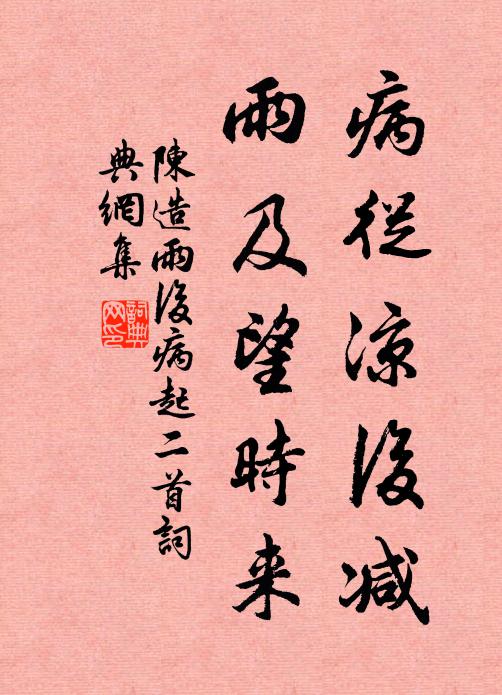 病從涼後減
雨及望時来
陳造雨後病起二首詞
典網集
詞典
网印